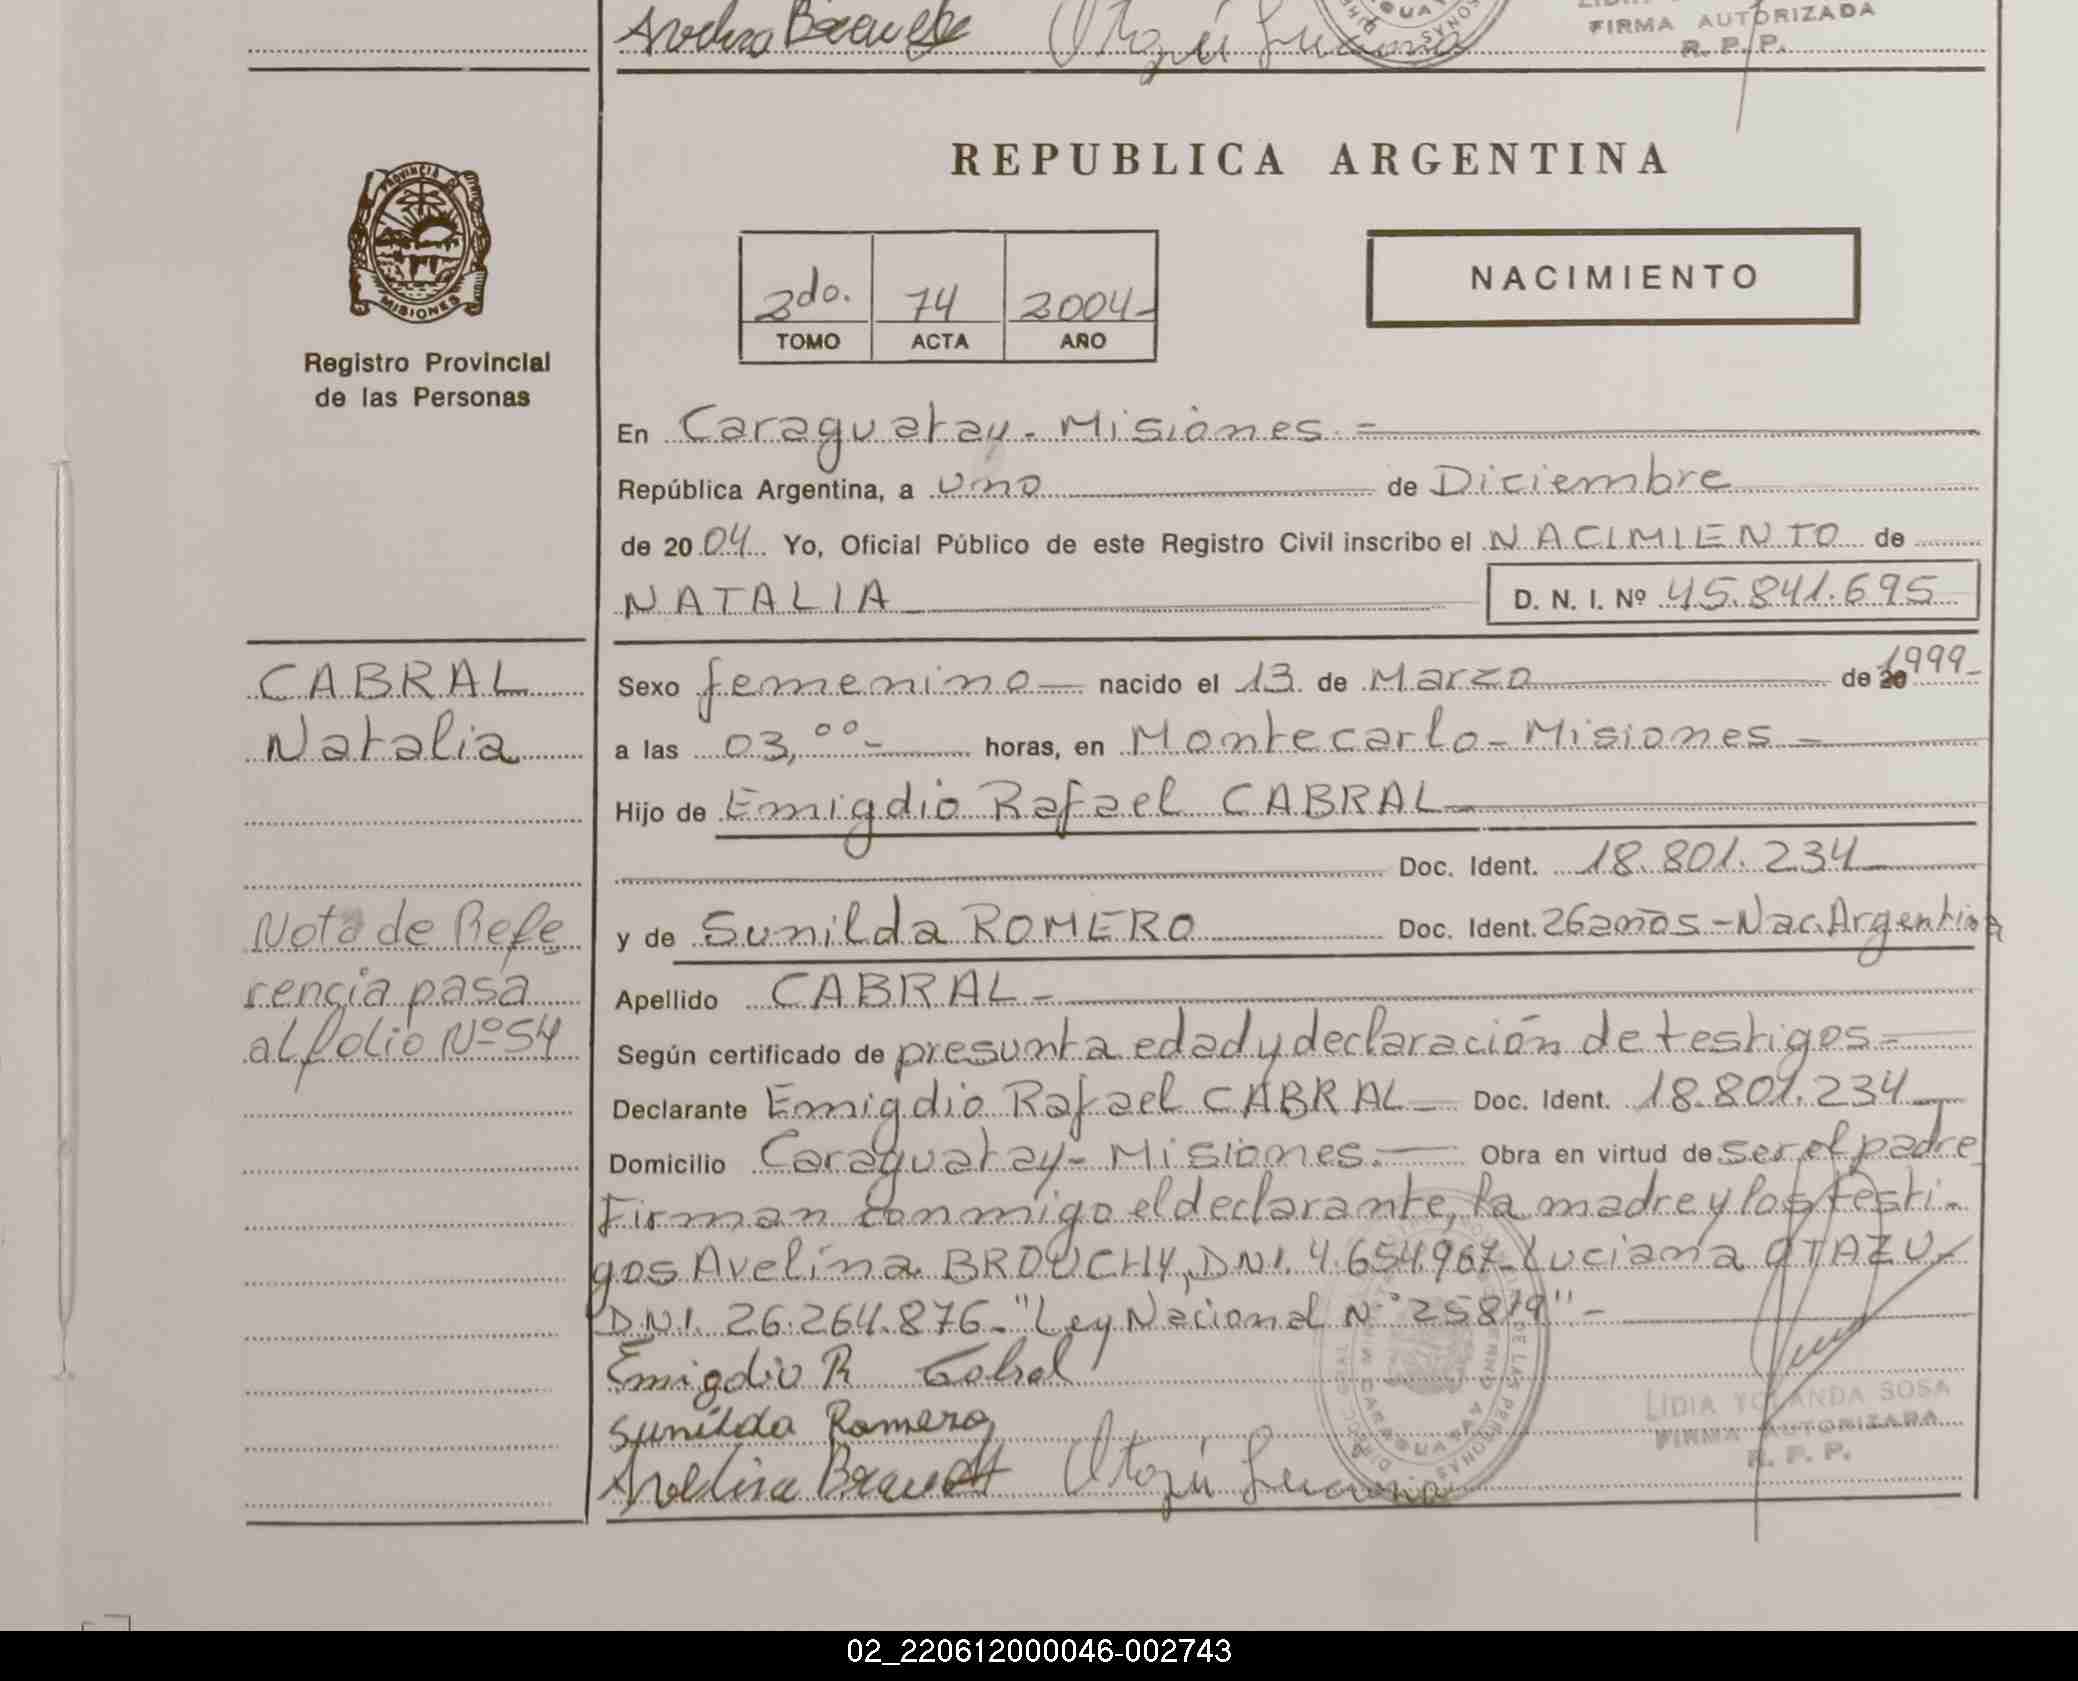 FIRMA AUTORIZADA
R. P. P.
PROVINCIA DE
MISIONES
Registro Provincial
de las Personas
REPUBLICA ARGENTINA
2do. 74 2004-
TOMO ACTA AÑO
NACIMIENTO
En Caraguatay - Misiones. =
República Argentina, a uno de Diciembre
de 2004 Yo, Oficial Público de este Registro Civil inscribo el NACIMIENTO de
NATALIA D. N. I. Nº 45.841.695
CABRAL
Natalia
Sexo femenino nacido el 13 de Marzo de 20 1999-
a las 03,00- horas, en Montecarlo - Misiones -
Hijo de Emigdio Rafael CABRAL
Doc. Ident. 18.801.234
y de Sunilda ROMERO Doc. Ident. 26 años - Nac. Argentina
Apellido CABRAL -
Nota de Refe
rencia pasa
al folio Nº 54
Según certificado de presunta edad y declaración de testigos =
Declarante Emigdio Rafael CABRAL Doc. Ident. 18.801.234
Domicilio Caraguatay - Misiones. Obra en virtud de ser el padre
Firman conmigo el declarante, la madre y los testi-
gos Avelina BROUCHY, DNI. 4.654.967 - Luciana OTAZU -
DNI. 26.264.876 - "Ley Nacional Nº 25819" -
Emigdio R Cabral
Sunilda Romero
Otazú Luciana
LIDIA YOLANDA SOSA
FIRMA AUTORIZADA
R. P. P.
02_220612000046-002743